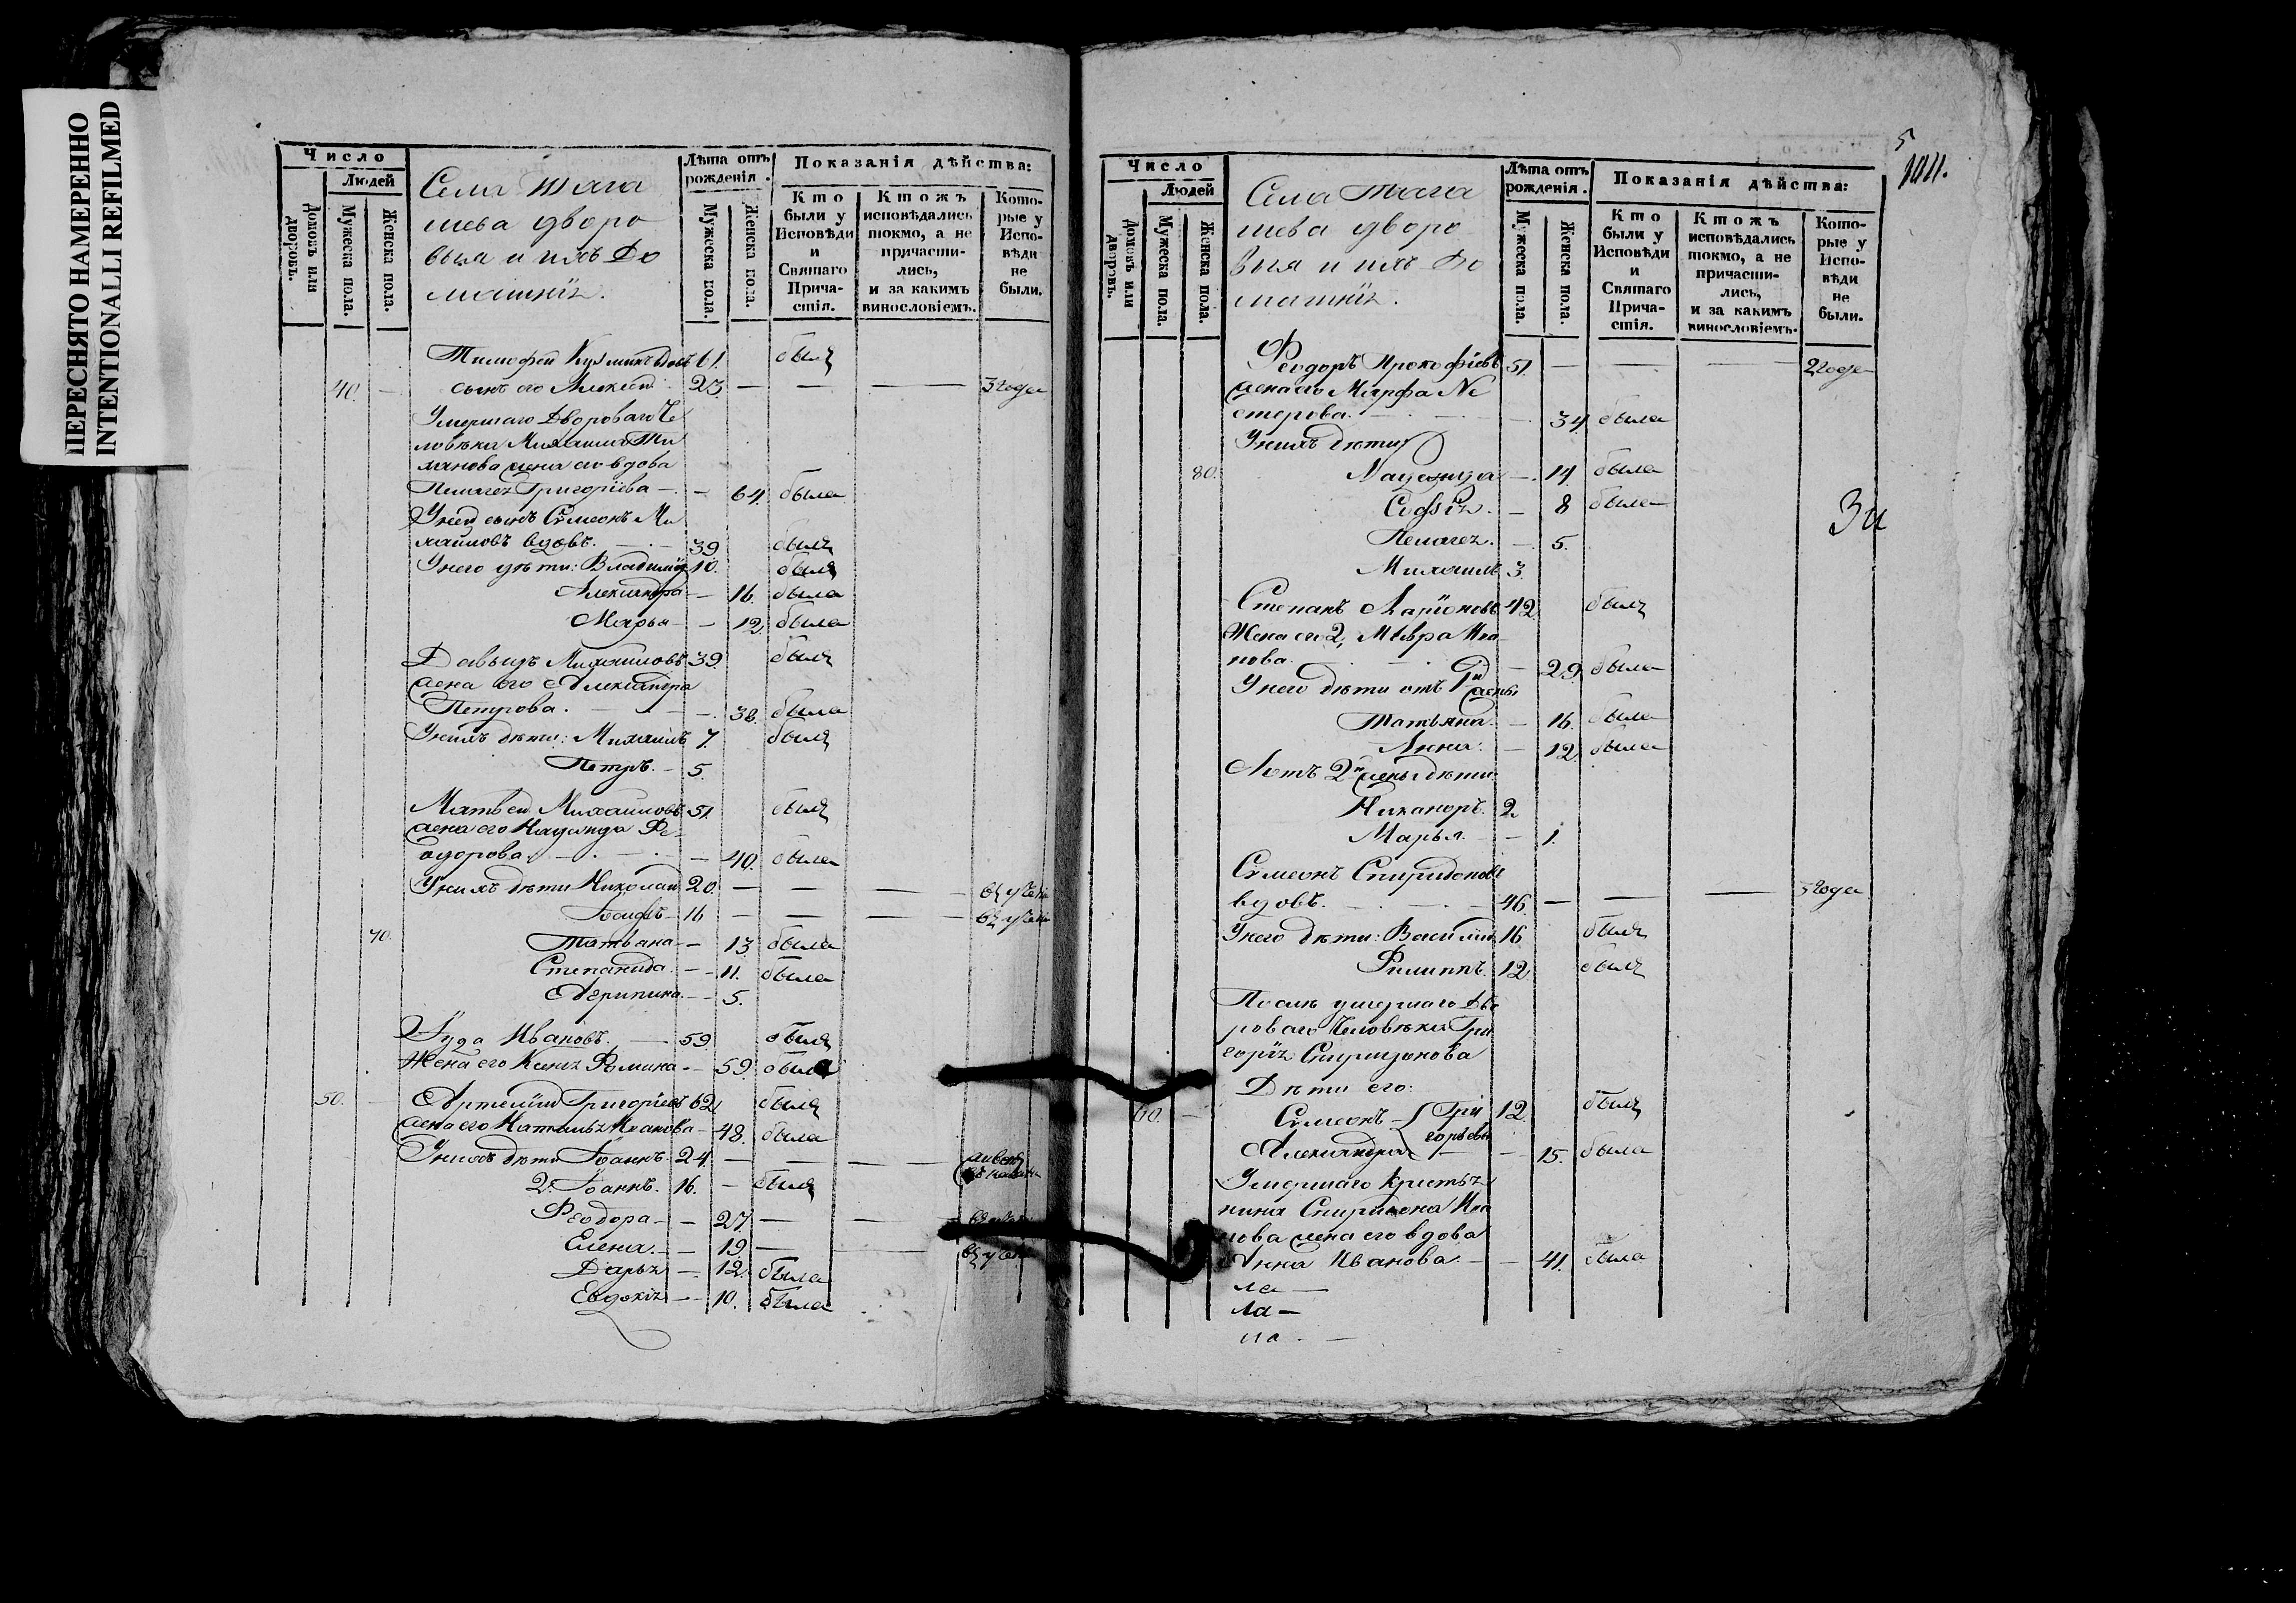 ПЕРЕСНЯТО НАМЕРЕННО
INTENTIONALLI REFILMED
Число
Людей
Домовъ или дворовъ.
Мужеска пола.
Женска пола.
Села Тага
шева дворо
выя и ихъ до
машнiи.
Лѣта отъ рожденiя.
Мужеска пола.
Женска пола.
Показанiя дѣйства:
Кто были у Исповѣди и Святаго Причастiя.
Ктожъ исповѣдались токмо, а не причастились, и за какимъ винословiемъ.
Которые у Исповѣди не были.
Тимофей Кузминъ вдовъ 61. былъ
40. — сынъ его Алексѣй 23 — — — 3 года
Умершаго Двороваго Че
ловѣка Михаила
жена его вдова
Пелагея Григорiева — — 64. была
У ней сынъ Сѵмеонъ Ми
хайловъ вдовъ. — 39. былъ
У него дѣти: Владимiръ 10. былъ
Александра — — 16. была
Марья — — 12. была
Давыдъ Михайловъ 39. былъ
жена его Александра
Петрова. — — 38. была
У нихъ дѣти: Михаилъ 7. былъ
Петръ. — 5.
Матвей Михайловъ 51 былъ
жена его Надежда Фе
одорова. — — 40. была
У нихъ дѣти Николай 20. — — —
Iосифъ — 16 — — —
70. Татьяна — — 13. была
Степанида. — — 11. была
Агрипина. — — 5.
Iуда Ивановъ. — 59. былъ
Жена его Ксенiя Фомина. — 59. была
50. — Артемiй Григорiевъ 62 былъ
жена его Наталья Иванова — 48. была
У нихъ дѣти Iоаннъ. 24. — — —
2. Iоаннъ. 16. — былъ
Феодора — — 27. — —
Елена. — — 19 — —
Дарья — — 12. была
Евдокiя — — 10. была
5
Число
Людей
Домовъ или дворовъ.
Мужеска пола.
Женска пола.
Села Тага
шева дворо
выя и ихъ до
машнiи.
Лѣта отъ рожденiя.
Мужеска пола.
Женска пола.
Показанiя дѣйства:
Кто были у Исповѣди и Святаго Причастiя.
Ктожъ исповѣдались токмо, а не причастились, и за какимъ винословiемъ.
Которые у Исповѣди не были.
Феодоръ Прокофiевъ 51. — — — 2 года
жена его Марфа Не
стерова. — — 34 была
У нихъ дѣти
80. Надежда — 14. была
Софiя. — 8 была
Пелагея. — 5.
Михаилъ 3.
Степанъ Ларiоновъ 42 былъ
Жена его 2, Мавра Ива
нова. — — 29. была
У него дѣти отъ 1й жены
Татьяна. — 16. была
Анна. — 12. была
А отъ 2й жены дѣти
Никаноръ. 2.
Марья. — 1.
Сѵмеонъ Спиридоновъ
вдовъ. — 46. — — — 3 года
У него дѣти: Василiй 16 былъ
Филиппъ. 12. былъ
Послѣ умершаго Дво
роваго Человѣка Гри
горiя Спиридонова
Дѣти его:
60. — Сѵмеонъ — Гри 12. былъ
горьевы
Александра — — 15. была
Умершаго крестья
нина Спиридона Ива
нова жена его вдова
Анна Иванова. — — 41. была